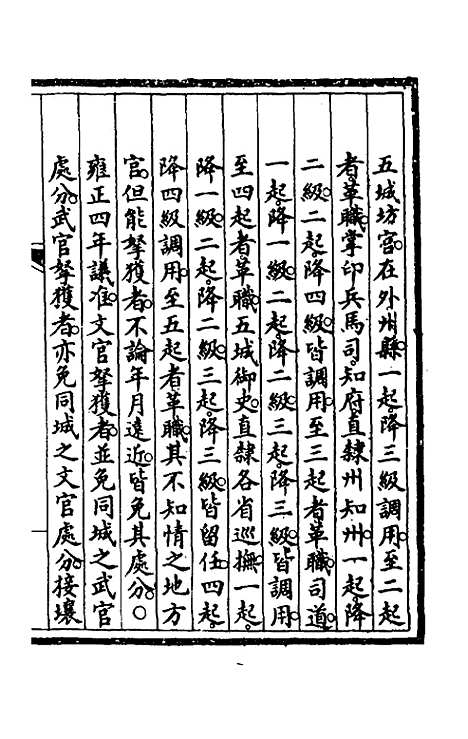 五城坊官。在外州縣。一起。降三級調用。至二起
者。革職。掌印兵馬司。知府直隸州知州。一起。降
二級。二起。降四級。皆調用。至三起者。革職。司道。
一起。降一級。二起。降二級。三起。降三級。皆調用。
至四起者。革職。五城御史。直隸各省巡撫。一起。
降一級。二起。降二級。三起。降三級。皆留任。四起。
降四級調用。至五起者革職。其不知情之地方
官。但能拏獲者。不論年月遠近。皆免其處分。○
雍正四年議准。文官拏獲者。並免同城之武官
處分。武官拏獲者。亦免同城之文官處分。接壤